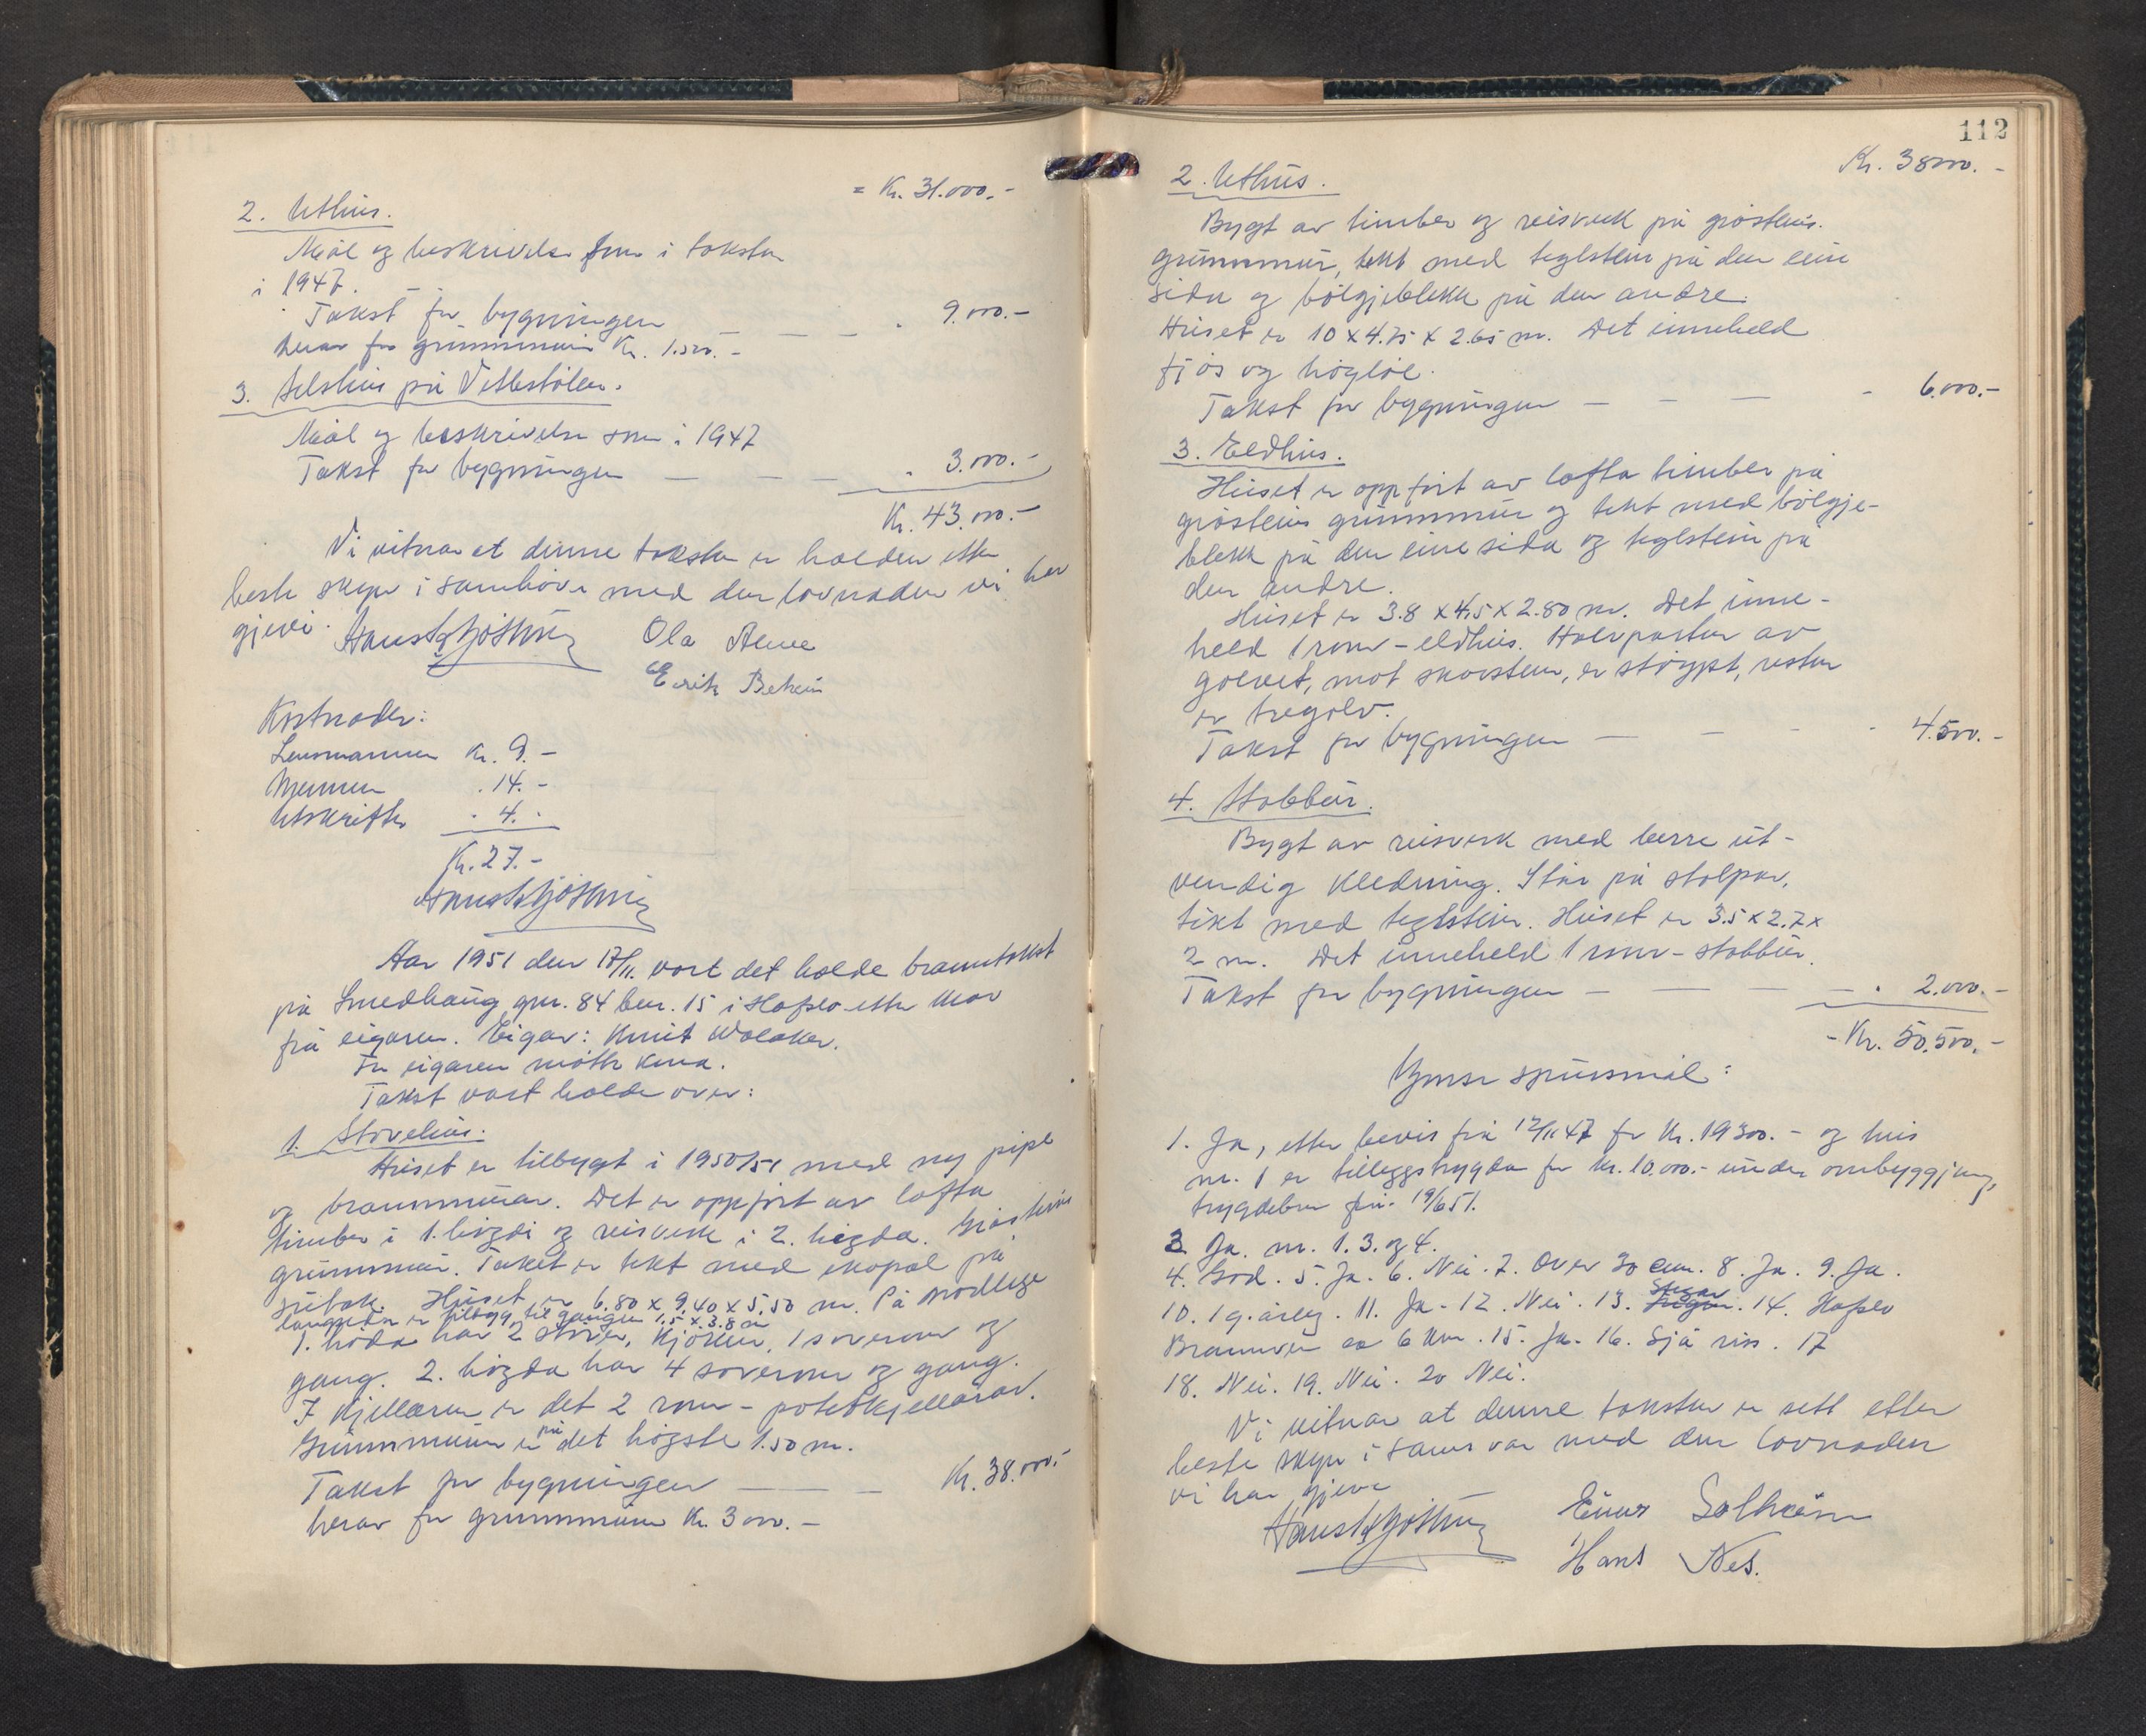 = Kr. 31.000.-
2. Uthus.
Mål og beskrivelse som i taksta
i 1947.
Takst for bygningen — — — " 9.000.-
herav for grunnmuren Kr. 1.500.-
3. Selshus på Vetlestølen.
Mål og beskrivelse som i 1947
Takst for bygningen — — — " 3.000.-
Kr. 43.000.-
Vi vitnar at denne taksten er halden etter
beste skyn i samhøve med den lovnaden vi har
gjeve.
Ola Alme
Erik Beheim
Kostnader:
Lensmannen Kr. 9.-
Mennene " 14.-
Utskrifter " 4.-
Kr. 27.-
Aar 1951 den 17/11. vart det halde branntakst
på Smedhaug gnr. 84 bnr. 15 i Hafslo etter krav
frå eigaren. Eigar: Knut Walaker.
For eigaren møtte kona.
Takst vart halde over:
1. Stovehus.
Huset er tilbygt i 1950/51 med ny pipe
og brannmurar. Det er oppført av lafta
timber i 1. høgdi og reisverk i 2. høgda. Gråsteins
grunnmur. Taket er tekt med ekopal på
sutak. Huset er 6.80 x 9.40 x 5.50 m. På nordlege
langsida er tilbygg til gangen 1.5 x 3.8 m
1. høgda har 2 stover, kjøken, 1 soverom og
gang. 2. høgda har 4 soverom og gang.
I kjellaren er det 2 rom - potetkjellarar.
Grunnmuren er på det høgste 1.50 m.
Takst for bygningen — — — Kr. 38.000.-
herav for grunnmuren Kr. 3000.-
112
Kr. 38000.-
2. Uthus.
Bygt av timber og reisverk på gråsteins.
grunnmur, tekt med teglstein på den eine
sida og bølgjeblekk på den andre.
Huset er 10 x 4.75 x 2.65 m. Det inneheld
fjøs og høyløe.
Takst for bygningen — — — - 6.000.-
3. Eldhus.
Huset er oppført av lafta timber på
gråsteins grunnmur og tekt med bølgje-
blekk på den eine sida og teglstein på
den andre.
Huset er 3.8 x 4.5 x 2.80 m. Det inne-
held 1 rom - eldhus. Halvparten av
golvet, mot skorstein, er støypt, resten
er tregolv.
Takst for bygningen — — - - 4.500.-
4. Stabbur.
Bygt av reisverk med berre ut-
vendig kledning. Står på stolpar,
tekt med teglstein. Huset er 3.5 x 2.7 x
2 m. Det inneheld 1 rom - stabbur.
Takst for bygningen — — — — " 2.000.-
- Kr. 50.500.-
Ymse spursmål:
1. Ja, etter bevis frå 12/11 47 for Kr. 19300.- og hus
nr. 1 er tilleggstrygda for kr. 10.000.- under ombyggjing,
trygdebrev frå 19/6 51.
3 Ja. nr. 1. 3. og 4.
4. God. 5. Ja. 6. Nei. 7. Over 30 cm. 8. Ja. 9. Ja.
10. 1 g. årleg. 11. Ja. 12. Nei. 13. Stegar. 14. Hafslo
Brannvern ca 6 km. 15. Ja. 16. Sjå riss. 17
18. Nei. 19. Nei. 20 Nei.
Vi vitnar at denne taksten er sett etter
beste skyn i samsvar med den lovnaden
vi har gjeve
Einar Solheim
Hans Nes.